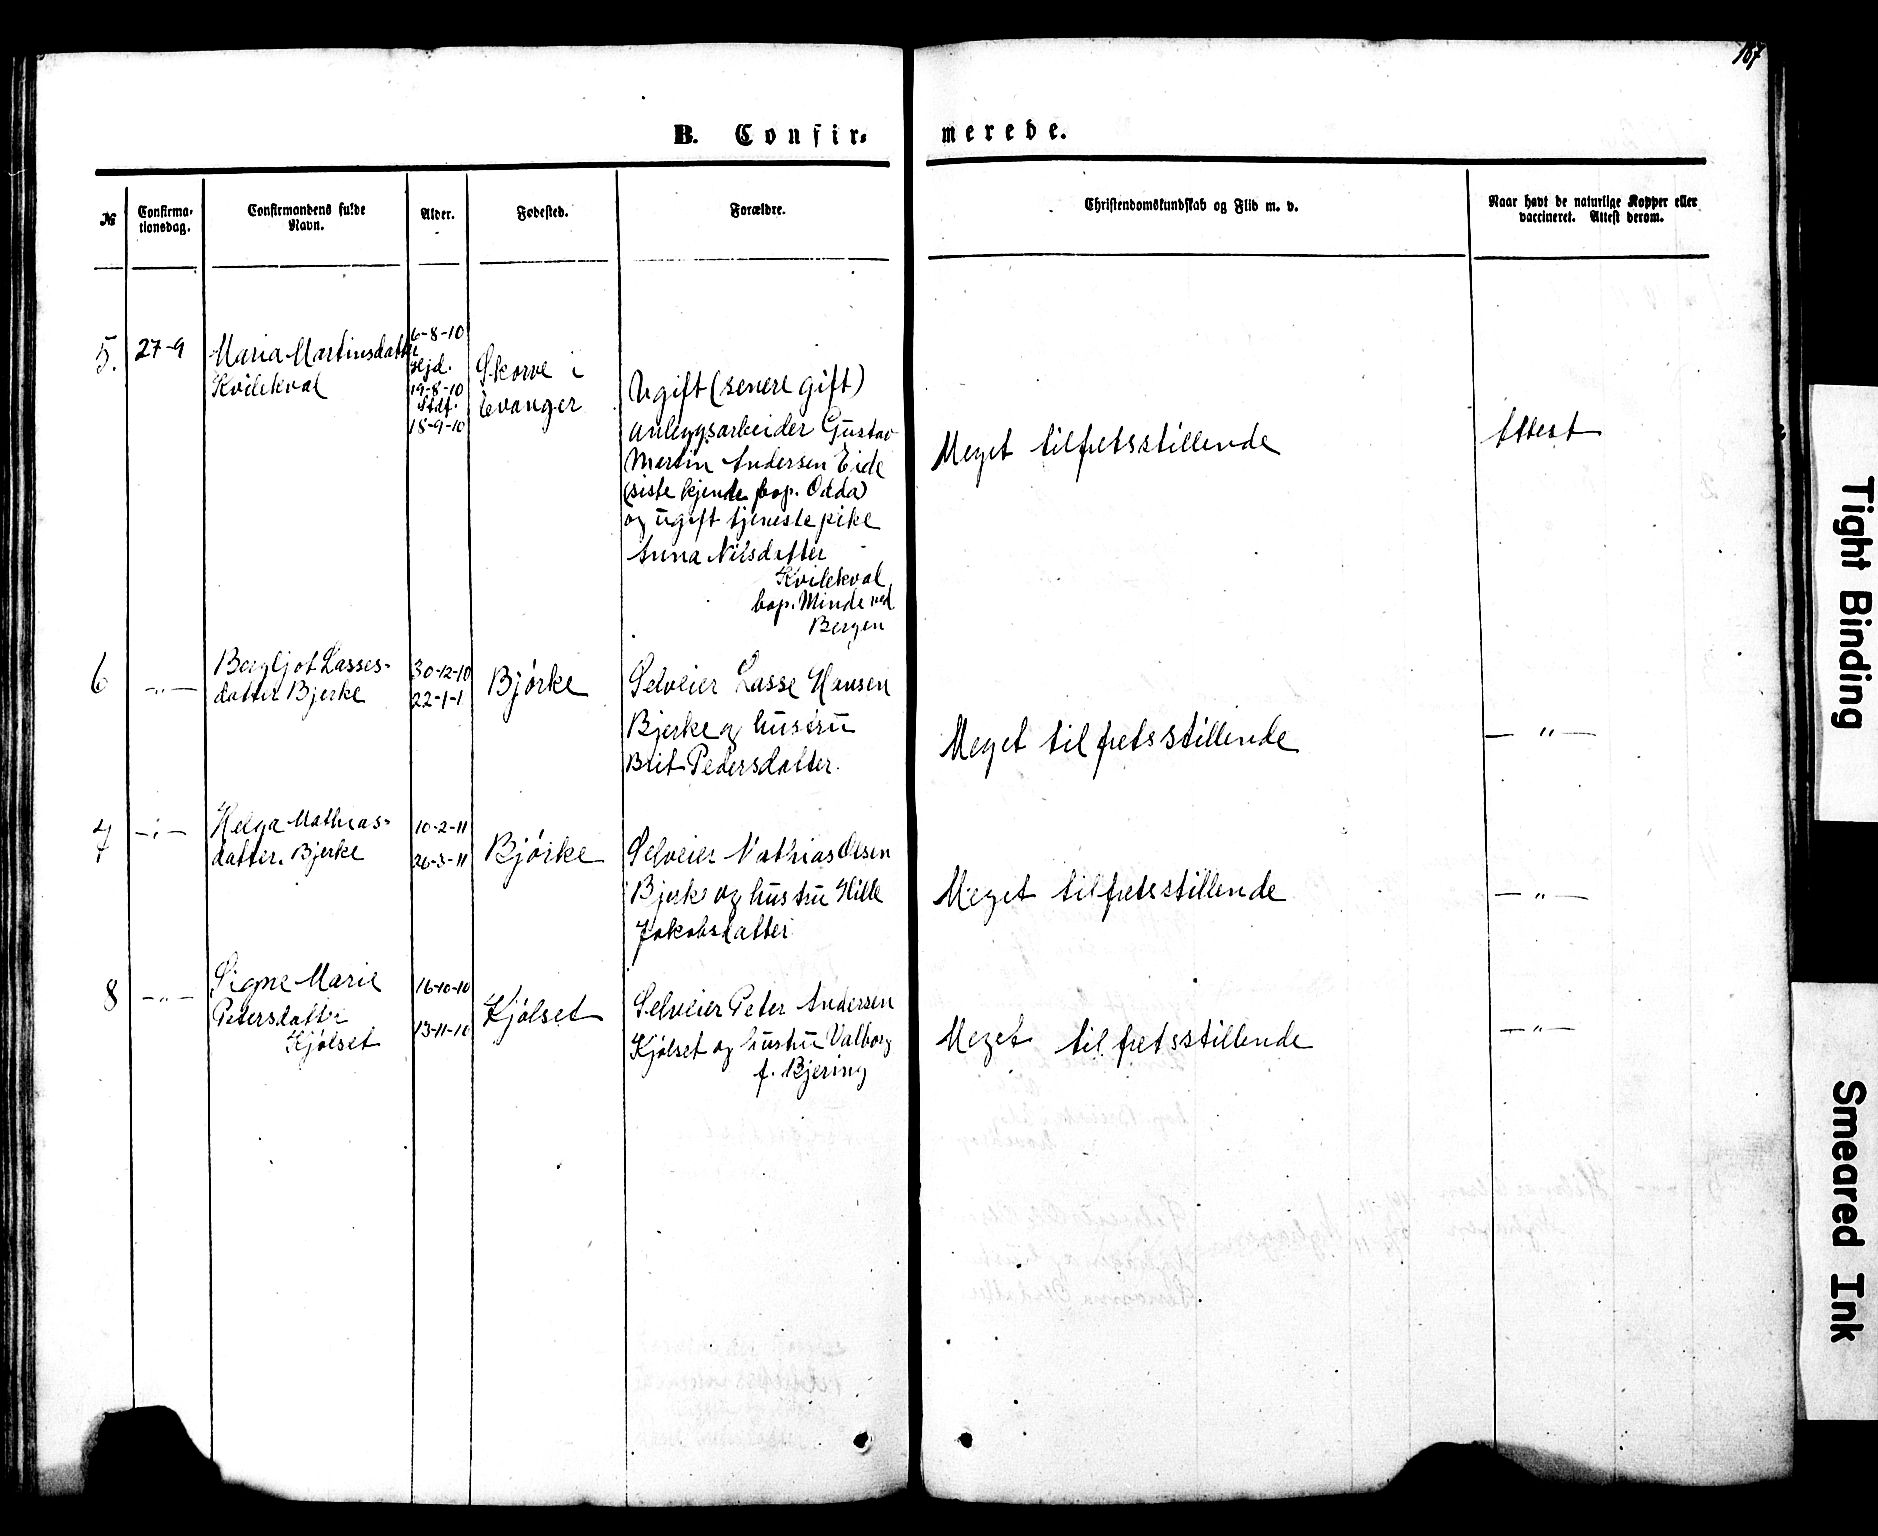 167
B. Confir-
merede.
№
Confirma-
tionsdag.
Confirmandens fulde
Navn.
Alder.
Fødested.
Forældre.
Christendomskundskab og Flid m. v.
Naar havt de naturlige Kopper eller
vaccineret. Attest derom.
5.
27-9
Maria Martinsdatter
Kvilekval
6-8-10
Hjd.
19-8-10
Stdf.
18-9-10
Skorve i
Evanger
Ugift (senere gift)
anlegsarbeider Gustav
Martin Andersen Eide
(siste kjende bop. Odda)
og ugift tjenestepike
Anna Nilsdatter
Kvilekval
bop. Minde ved
Bergen
Meget tilfretsstillende
Attest
6
-"-
Bergljot Lasses-
datter Bjerke
30-12-10
22-1-1
Bjørke
Selveier Lasse Hansen
Bjerke og hustru
Brit Pedersdatter.
Meget tilfretsstillende
-"-
7
-"-
Helga Mathias-
datter. Bjerke
10-2-11
26-3-11
Bjørke
Selveier Mathias Olsen
Bjerke og hustru Hille
Jakobsdatter
Meget tilfretsstillende
-"-
8
-"-
Signe Marie
Petersdatter
Kjølset
16-10-10
13-11-10
Kjølset
Selveier Peter Andersen
Kjølset og hustru Valborg
f. Bjering
Meget tilfretsstillende
-"-
Tight Binding
Smeared Ink